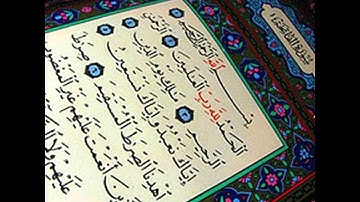 سُورَةُ الفَاتِحَةِ
بِسْمِ اللَّهِ الرَّحْمَٰنِ الرَّحِيمِ
الْحَمْدُ لِلَّهِ رَبِّ الْعَالَمِينَ الرَّحْمَٰنِ
الرَّحِيمِ مَالِكِ يَوْمِ الدِّينِ
إِيَّاكَ نَعْبُدُ وَإِيَّاكَ نَسْتَعِينُ
اهْدِنَا الصِّرَاطَ الْمُسْتَقِيمَ صِرَاطَ
أَنْعَمْتَ عَلَيْهِمْ غَيْرِ الْمَغْضُوبِ
عَلَيْهِمْ وَلَا